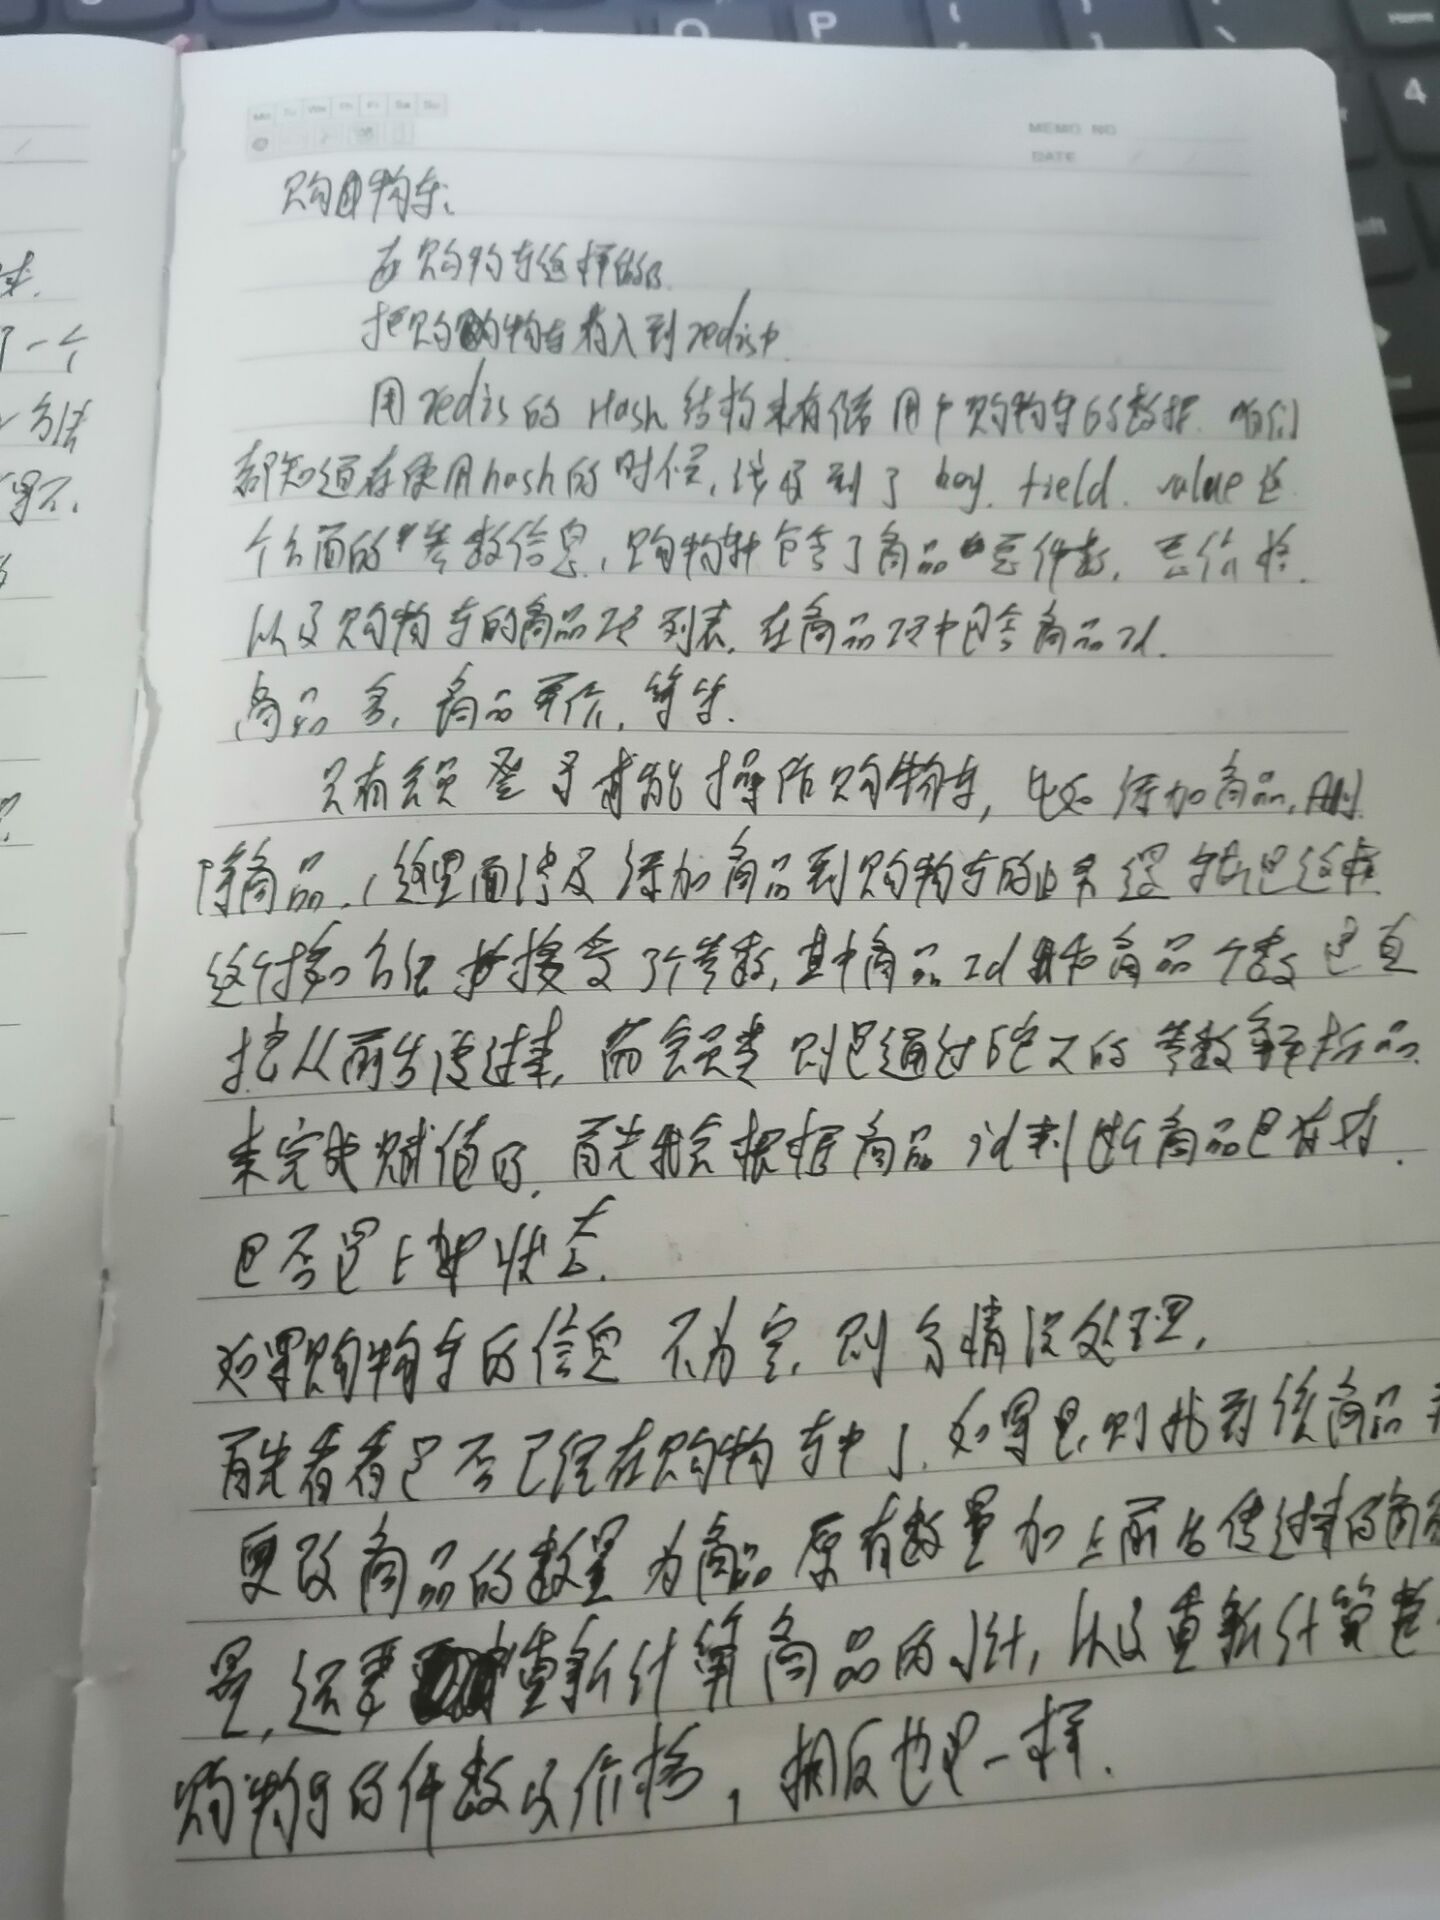 Mo Tu We Th Fr Sa Su
MEMO NO
DATE / /
购物车:
在购物车这样做的.
把购物车存入到redis中.
用redis的Hash结构来存储用户购物车的数据. 咱们
都知道在使用hash的时候,涉及到了key. field. value这
个方面的参数信息,购物车中包含了商品总件数,总价格.
以及购物车的商品项列表,在商品项中包含商品id.
商品名,商品单价,等等.
只有会员登录才能操作购物车,比如添加商品,删
除商品.,这里面涉及添加商品到购物车的业务逻辑是这样
这个接口方法接受了个参数,其中商品id和商品个数是直
接从前台传过来,而会员类则是通过的参数解析器
来完成赋值的,首先我会根据商品id判断商品是否存在.
是否是上架状态.
如果购物车的信息不为空,则分情况处理,
首先看看是否已经在购物车中了.如果是,则找到该商品
更改商品的数量为商品原有数量加上前台传过来的商品
量,还要重新计算商品的小计,以及重新计算整
购物车的件数及价格,相反也是一样.